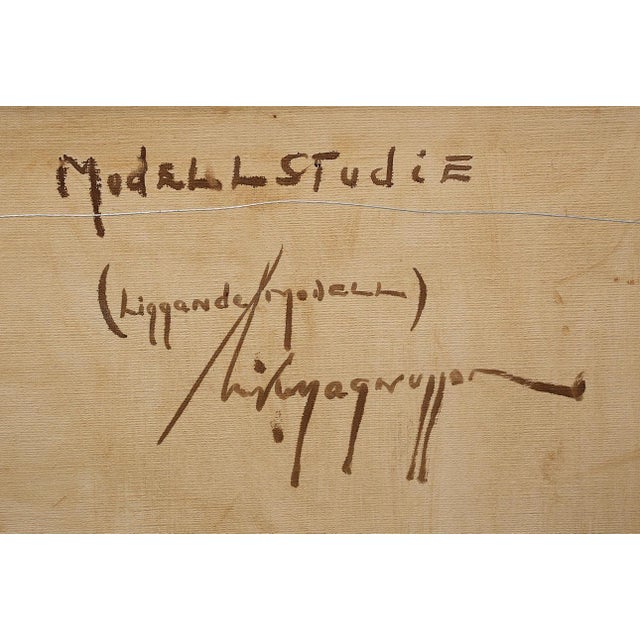 MODELLSTUdiE
(Liggande MODELL)